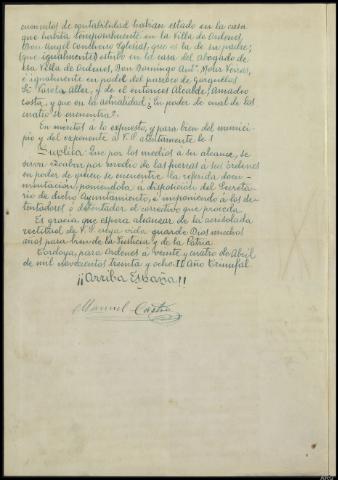 cumentos de contabilidad habian estado en la casa
que habita temporalmente en la Villa de Ordenes,
Don Angel Concheiro Iglesias, que es la de su padre;
(que igualmente) estuvo en la casa del Abogado de
esta Villa de Ordenes, Don Domingo Antº Mora
é igualmente en poder del parroco de
Sr Varela Aller, y de el entonces Alcalde, Amadeo
Costa, y que en la actualidad ¿En poder de cual de los
cuatro se encuentra?.
En meritos a lo expuesto, y para bien del munici-
pio y del exponente a V.S. atentamente le
Suplica: Que por los medios a su alcance, se
sirva recabar por medio de las fuerzas a sus órdenes
en poder de quien se encuentre la referida docu-
mentacion, poniendola a disposición del Secreta-
rio de dicho Ayuntamiento, é imponiendo a los de-
tentadores o detentador el correctivo que proceda.
Es gracia que espera alcanzar de la acrisolada
rectitud de V.S. cuya vida guarde Dios muchos
años para bien de la Justicia y de la Patria
para Ordenes a veinte y cuatro de Abril
de mil novecientos treinta y ocho. II Año Triunfal
¡¡Arriba España!!
Manuel Castro